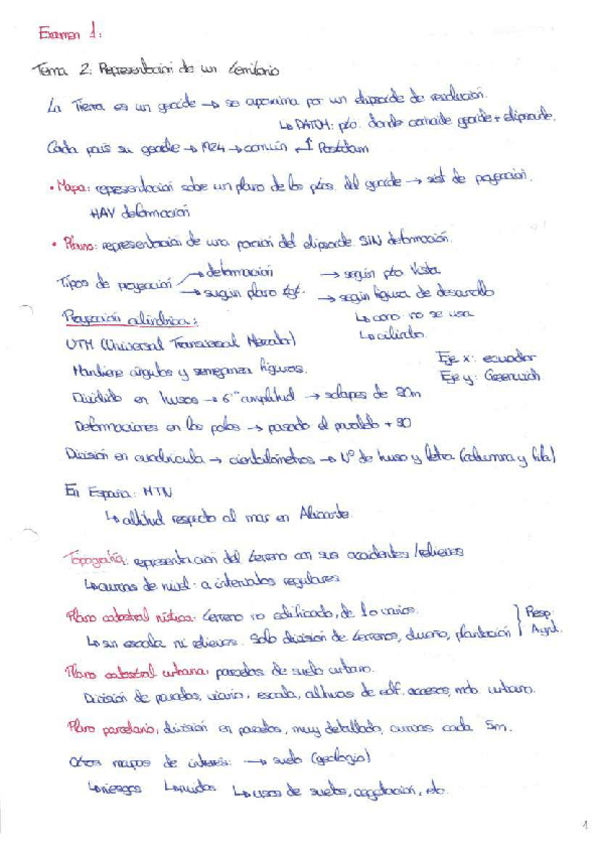 Examen 1:
Tema 2: Representación de un territorio
La Tierra es un geoide → se aproxima por un elipsoide de revolución.
↳ DATUM: pto. donde coincide geoide + elipsoide.
Cada país su geoide → 1924 → común ↔ Postdam
• Mapa: representación sobre un plano de los ptos. del geoide → sist de proyección.
HAY deformación
• Plano: representación de una porción del elipsoide SIN deformación.
Tipos de proyección → deformación → según pto Vista
→ según plano tgt. → según figura de desarrollo
↳ cono: no se usa
↳ cilindro.
Proyección cilíndrica:
UTM (Universal Transversal Mercator)
Mantiene ángulos y semejanza figuras.
Eje x: ecuador
Eje y: Greenwich
Dividido en husos → 6° amplitud → solapes de
Deformaciones en los polos → pasado el paralelo + 80
División en cuadrícula → cienkilómetros → Nº de huso y letra (columna y fila)
En España: MTN
↳ altitud respecto al mar en Alicante.
Topografía: representación del terreno con sus accidentes/relieves
↳ curvas de nivel: a intervalos regulares
Plano catastral rústica: terreno no edificado, de 1 o varios.
↳ sin escala ni relieves. Solo división de terrenos, dueño, plantación } Resp: Aynt.
Plano catastral urbana: parcelas de suelo urbano.
División de parcelas, viario, escala, alturas de edf. accesos, mob urbano.
Plano parcelario: división en parcelas, muy detallado, curvas cada 5m.
Otros mapas de interés: → suelo (geología)
↳ riesgos ↳ ruidos ↳ usos de suelos, vegetación, etc.
1